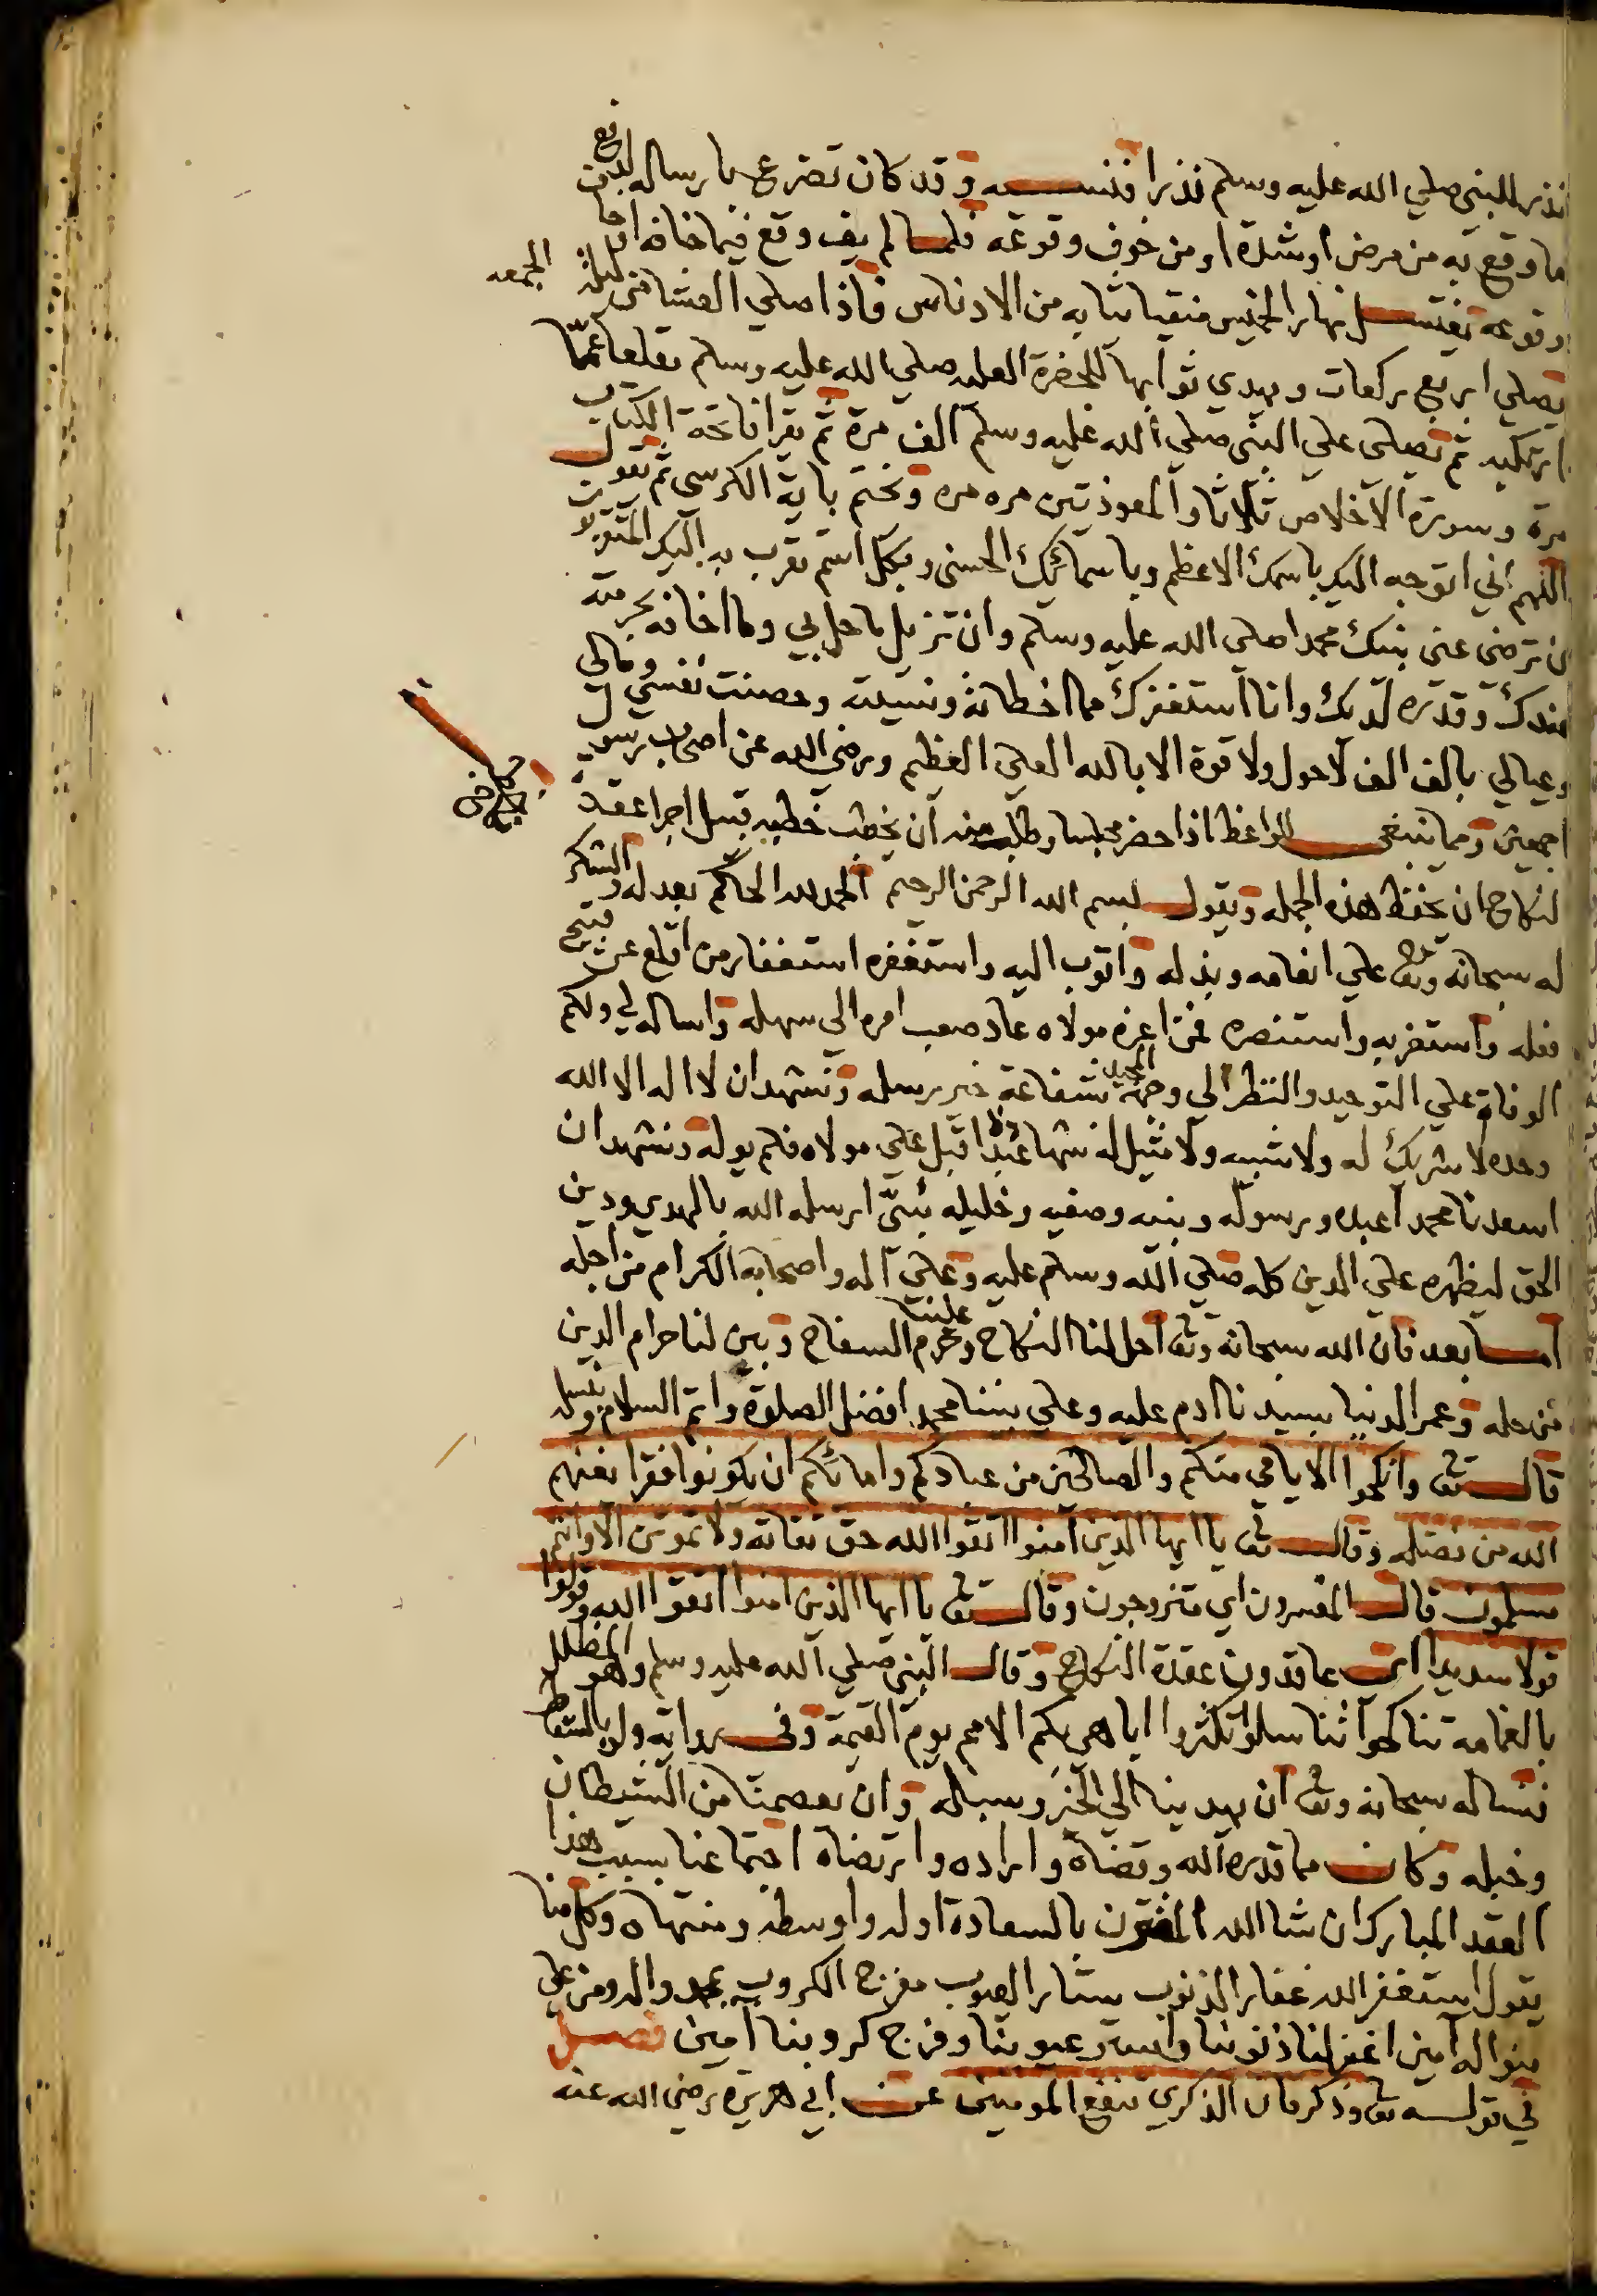 نذر للنبي صلي الله عليه وسلم نذرا فنسيه وقد كان تضرع بارساله لدفع
ما وقع به من مرض اوشدة او من خوف وقوعه فلما لم يف وقع فيما خافه
وقوعه يغتسل نهار الخميس منقيا ثيابه من الادناس فاذا صلي العشا من ليلة الجمعه
يصلي اربع ركعات ويهدي ثوابها للحضرة العليه صلي الله عليه وسلم مقلعا عمّا
ارتكبه ثم يصلي علي النبي صلي الله عليه وسلم الف مرة ثم يقرا فاتحة الكتاب
مرة وسورة الاخلاص ثلاثا والمعوذتين مره مره ويختم باية الكرسي ثم يقول
اللهم اني اتوجه اليك باسمك الاعظم وباسمائك الحسني وبكل اسم تقرب به اليك المتقربون
ان ترضي عني نبيك محمدا صلي الله عليه وسلم وان تزيل ما حل بي وما اخافه بحرمته
عندك وقدره لديك وانا استغفرك مما اخطاته ونسيته وحصنت نفسي ومالي
وعيالي بالف الف لاحول ولا قوة الا بالله العلي العظيم ورضي الله عن اصحاب رسول
اجمعين ومما ينبغي للواعظ اذا حضر مجلسا وطلب منه ان يخطب خطبه قبل اجرا عقد
النكاح ان يحفظ هذه الجمله ويقول بسم الله الرحمن الرحيم الحمدلله الحاكم بعدله والشكر
له سبحانه وتعالى علي انعامه وبذله واتوب اليه واستغفره استغفار من اقلع عن قبيح
فعله واستعز به واستنصره فمن اعزه مولاه عاد صعب امره الي سهله واساله لي ولكم
الوفاة علي التوحيد والنظر الي وجهه المجيد بشفاعة خير رسله ونشهد ان لا اله الا الله
وحده لا شريك له ولا شبيه ولا مثيل له شهادة عبد اقبل علي مولاه فلم يوله ونشهد ان
اسعدنا محمدا عبده ورسوله ونبيه وصفيه وخليله نبيّ ارسله الله بالهدي ودين
الحق ليظهره علي الدين كله صلي الله وسلم عليه وعلي اله واصحابه الكرام من اجله
اما بعد فان الله سبحانه وتعالى احل لنا النكاح وحرم علينا السفاح وبين لنا حرام الدين
من حله وعمر الدنيا بسيدنا ادم عليه وعلي نبينا محمد افضل الصلوة واتم السلام ونسله
قال تعالى وانكحوا الايامي منكم والصالحين من عبادكم وامائكم ان يكونوا فقرا يغنهم
الله من فضله وقال تعالى يا ايها الذين آمنوا اتقوا الله حق تقاته ولا تموتن الا وانتم
مسلمون قال المفسرون اي متزوجون وقال تعالى يا ايها الذين امنوا اتقوا الله وقولوا
قولا سديدا اي عاقدون عقدة النكاح وقال النبي صلي الله عليه وسلم وهو المظلل
بالغمامه تناكحوا تناسلوا تكثروا اباهي بكم الامم يوم القيمة وفي رواية ولو بالسقط
نساله سبحانه وتعالى ان يهدينا الي الخير وسبله وان يعصمنا من الشيطان
وخبله وكان مما قدره الله وقضاه واراده وارتضاه اجتماعنا بسبب هذا
العقد المبارك ان شا الله المقرون بالسعادة اوله واوسطه ومنتهاه وكل منا
يقول استغفر الله غفار الذنوب ستار العيوب مفرج الكروب بمحمد واله ومن علي
منواله آمين اغفر لنا ذنوبنا واستر عيوبنا وفرج كروبنا امين فصل
في قوله تعالى وذكر فان الذكري تنفع المومنين عن ابي هريرة رضي الله عنه